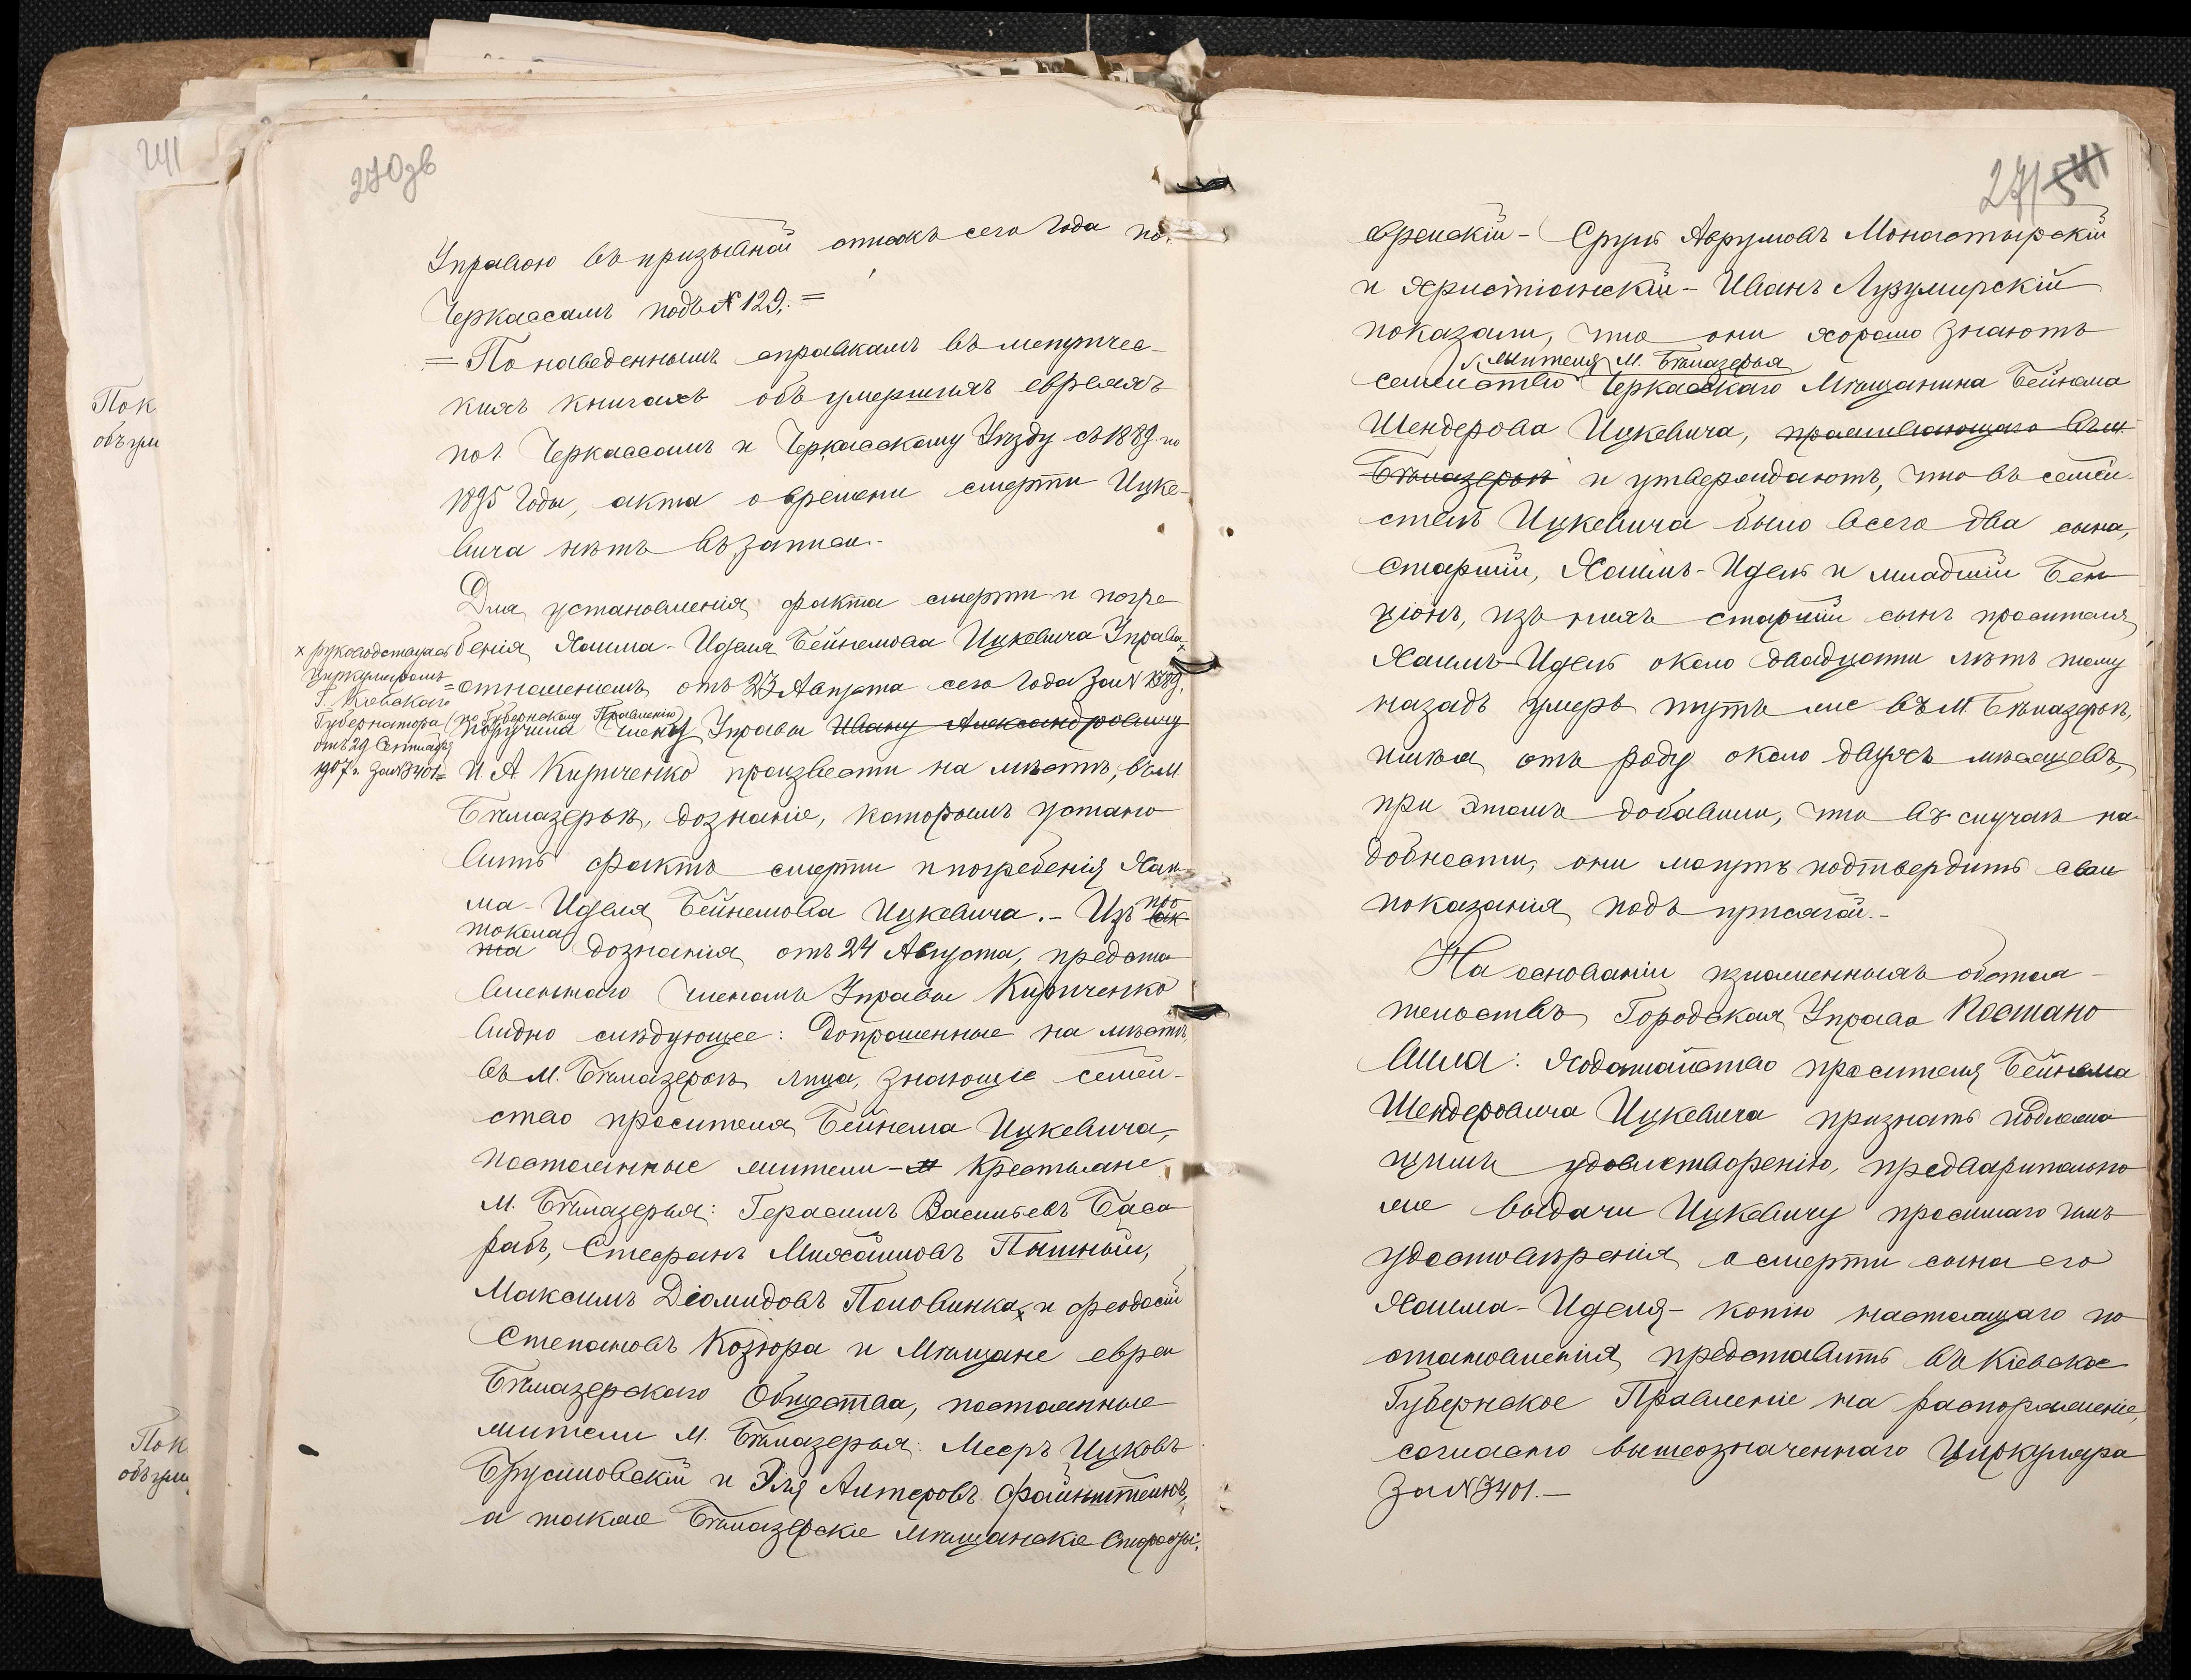 241
Пок
объ ум
Пок
объ ум
270 об
Управою въ призывной списокъ сего года по г.
Черкассамъ подъ № 129. =
= По наведеннымъ справкамъ въ метричес-
кихъ книгахъ объ умершихъ евреяхъ
по г. Черкассамъ и Черкасскому Уѣзду съ 1889 по
1895 годы, акта о времени смерти Ицке-
вича нѣтъ въ записи.-
Для установленія факта смерти и погре
бенія Хаима-Иделя Бейнемова Ицкевича Управа,
× руководствуясь
Циркуляромъ =
Г. Кіевскаго
Губернатора (по Губернскому Правленію)
отъ 29 Сентября
1907 г. за № 3401=
отношеніемъ отъ 23 Августа сего года за №
поручила Члену Управы Ивану Александровичу
И А Кириченко произвести на мѣстѣ, въ М.
Бѣлазерьѣ, дознаніе, которымъ устано
вить фактъ смерти и погребенія Хаи-
ма-Иделя Бейнемова Ицкевича.- Изъ про
ак-
токола
та дознанія отъ 24 Августа, предста
вленнаго Членомъ Управы Кириченко
видно слѣдующее: Допрошенные на мѣстѣ,
въ М. Бѣлазерьѣ лица, знающіе семей-
ство просителя Бейнема Ицкевича,
постоянные жители - Крестьяне
М. Бѣлазерья: Герасимъ Васильевъ Баса
рабъ, Стефанъ Михайловъ Пышный,
Максимъ Діомидовъ Половинка, и Феодосій
Степановъ Козюра и Мѣщане евреи
Бѣлазерскаго Общества, постоянные
жители М. Бѣлазерья: Мееръ Ицковъ
Брусиловскій и Эля Алтеровъ Файнштейнъ,
а также Бѣлазерскіе мѣщанскіе Старосты:
271 541
еврейскій - Сруль Аврумовъ Монастырскій
и Христіанскій - Иванъ Лузумирскій
показали, что они хорошо знаютъ
жителя М. Бѣлазерья
семейство Черкасскаго Мѣщанина Бейнема
Шендерова Ицкевича, проживающаго въ м.
Бѣлазерьѣ и утверждаютъ, что въ семей-
ствѣ Ицкевича было всего два сына,
старшій, Хаимъ-Идель и младшій Бен
ціонъ, изъ нихъ старшій сынъ просителя
Хаимъ-Идель около двадцати лѣтъ тому
назадъ умеръ тутъ же въ М. Бѣлазерьѣ,
имѣя отъ роду около двухъ мѣсяцевъ,
при этомъ добавили, что въ случаѣ на-
добности, они могутъ подтвердить свои
показанія подъ присягой.-
На основаніи изложенныхъ обстоя-
тельствъ Городская Управа Постано
вила: Ходатайство просителя Бейнема
Шендеровича Ицкевича признать подлежа
щимъ удовлетворенію, предварительно
же выдачи Ицкевичу просимаго имъ
удостовѣренія о смерти сына его
Хаима-Иделя - копію настоящаго по
становленія представить въ Кіевское
Губернское Правленіе на распоряженіе,
согласно вышеозначеннаго Циркуляра
За № 3401.-